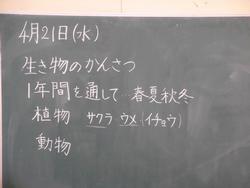 4月21日(水)
生き物のかんさつ
1年間を通して 春夏秋冬
植物 サクラ ウメ (イチョウ)
動物